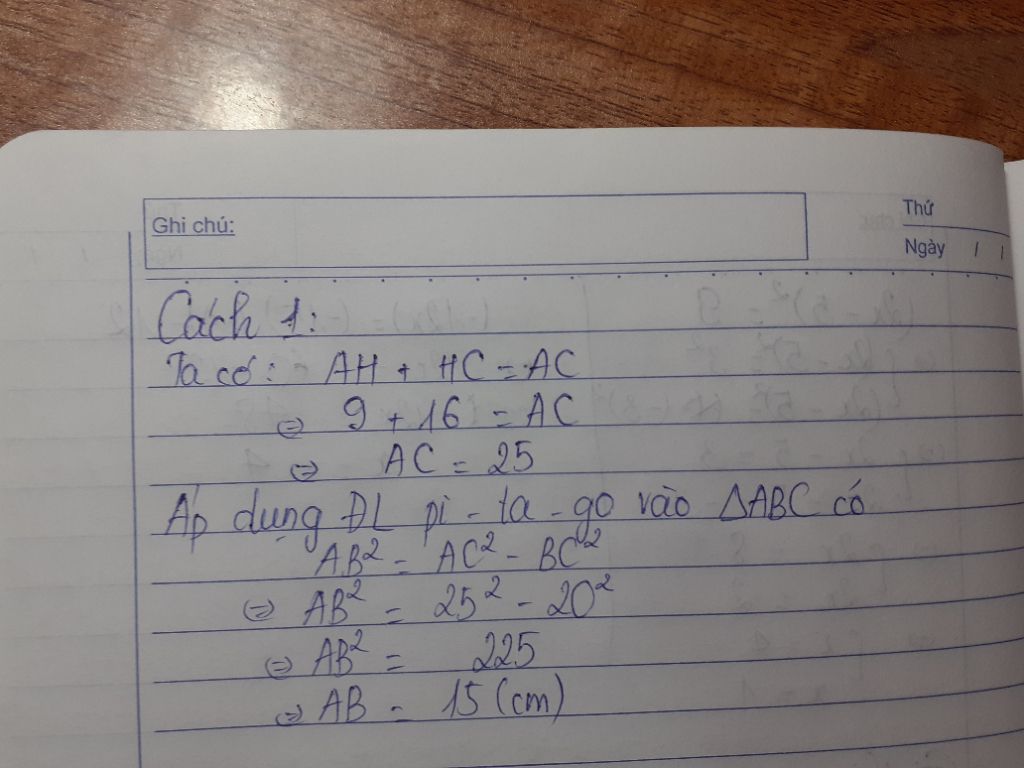 Ghi chú:
Thứ
Ngày / /
Cách 1:
Ta có: AH + HC = AC
⇔ 9 + 16 = AC
⇔ AC = 25
Áp dụng ĐL pi - ta - go vào ΔABC có
AB² = AC² - BC²
⇔ AB² = 25² - 20²
⇔ AB² = 225
⇔ AB = 15 (cm)